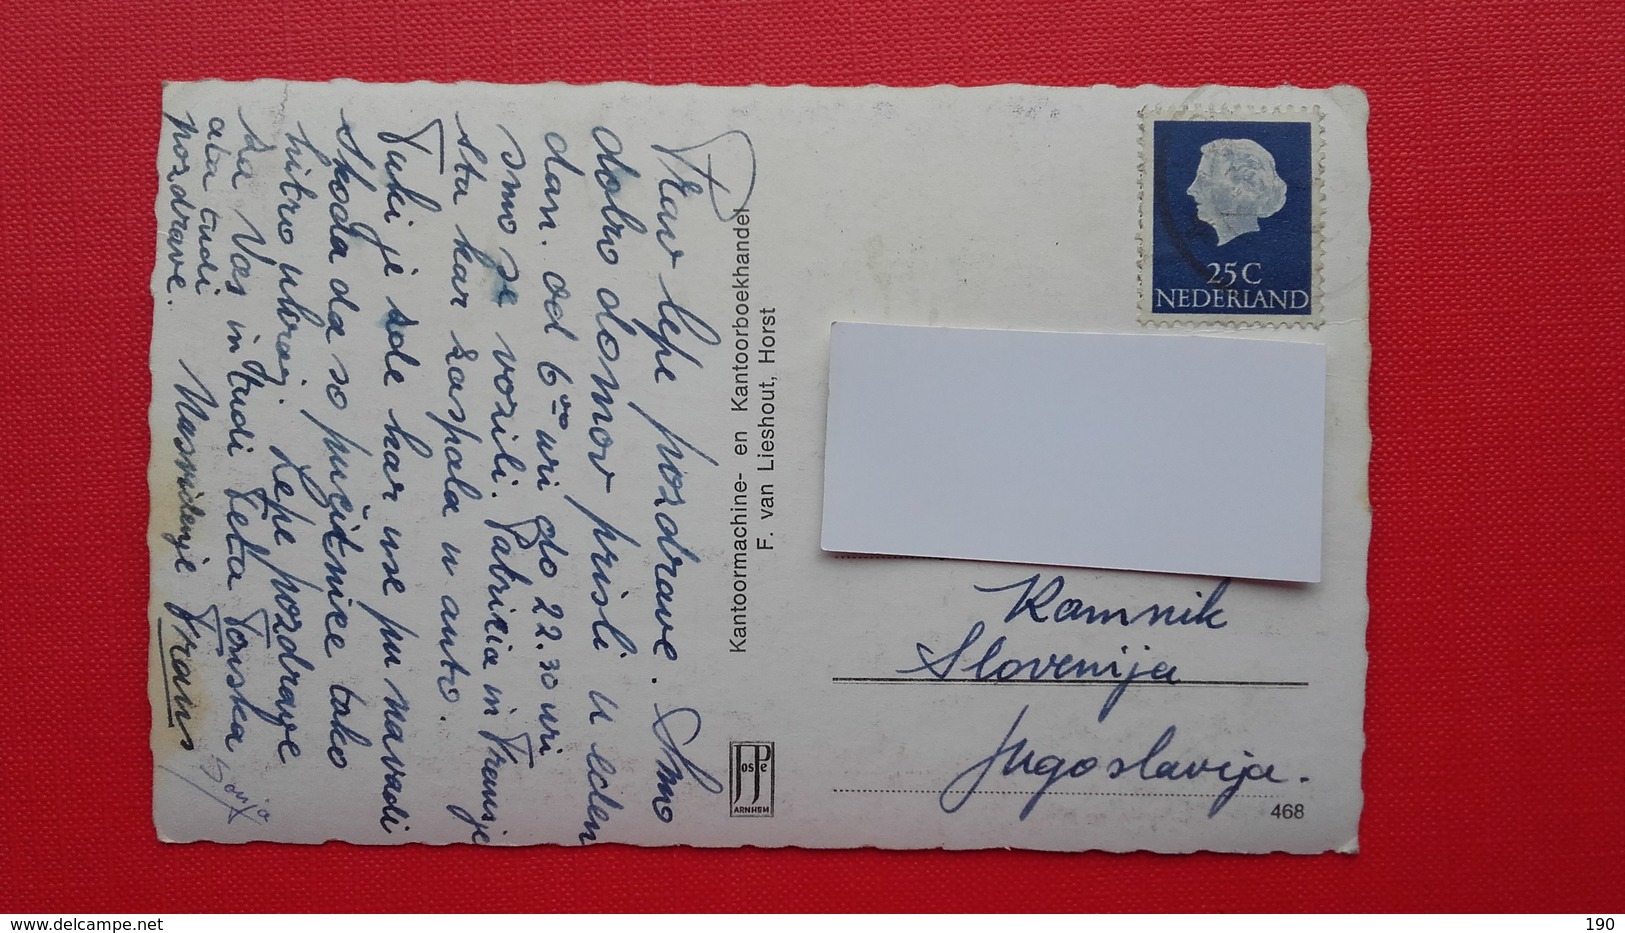 Prav lepe pozdrave. Smo
dobro domov prisli u eden
dan. od 6 uri do 22.30 uri
smo se vozili. Patricia in
sta kar zaspala u auto.
Tuki je sde kar use pu navadi
skoda da so pučitnice tako
hitro ukraj. Lepe pozdrave
za Vas in tudi Teta Tonska
ata tudi
pozdrave. Nasvidenje Frans
Sonja
Kantoormachine- en Kantoorboekhandel
F. van Lieshout, Horst
JosPe
ARNHEM
25C
NEDERLAND
Kamnik
Slovenija
Jugoslavija.
468
190
delcampe.net